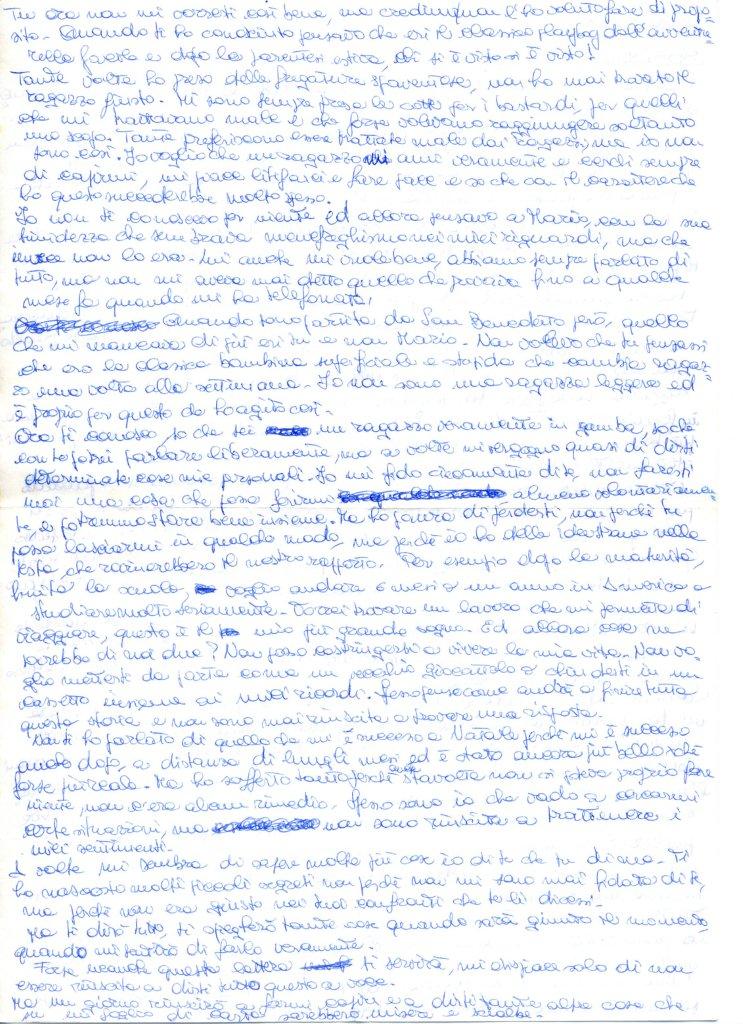 Tu ora non mi corresti così bene, ma credimi, non l'ho voluto fare di propo=
sito. Quando ti ho conosciuto pensavo che eri il classico playboy dall'avventu=
rella facile e dopo la parentesi estiva, chi si è visto si è visto!
Tante volte ho preso delle fregature spaventose, non ho mai trovato il
ragazzo giusto. Mi sono sempre presa le cotte per i bastardi, per quelli
che mi trattavano male e che forse volevano raggiungere soltanto
uno scopo. Tante preferiscono esser trattate male dai ragazzi, ma io non
sono così. Io voglio che un ragazzo mi ami veramente e cerchi sempre
di capirmi, mi piace litigarci e fare pace e so che con il carattere che
ho questo succederebbe molto spesso.
Io non ti conoscevo per niente ed allora pensavo a Mario, con la sua
timidezza che sembrava menefreghismo nei miei riguardi, ma che
invece non lo era. Lui anche mi vuole bene, abbiamo sempre parlato di
tutto, ma non mi aveva mai detto quello che provava fino a qualche
mese fa quando mi ha telefonato!
Quando sono partita da San Benedetto però, quello
che mi mancava di più eri tu e non Mario. Non volevo che tu pensassi
che ero la classica bambina superficiale e stupida che cambia ragaz=
zo una volta alla settimana. Io non sono una ragazza leggera ed
è proprio per questo che ho agito così.
Ora ti conosco, so che sei un ragazzo veramente in gamba, so che
con te posso parlare liberamente, ma a volte mi vergogno quasi di dirti
determinate cose mie personali. Io mi fido ciecamente di te, non faresti
mai una cosa che possa ferirmi almeno volontariamen=
te, e potremmo stare bene insieme. Ma ho paura di perderti, non perché tu
possa lasciarmi in qualche modo, ma perché io ho delle idee strane nella
testa, che rovinerebbero il nostro rapporto. Per esempio dopo la maturità,
finita la scuola, voglio andare 6 mesi o un anno in America a
studiare molto seriamente. Vorrei trovare un lavoro che mi permetta di
viaggiare, questo è il mio più grande sogno. Ed allora cosa ne
sarebbe di noi due? Non posso costringerti a vivere la mia vita. Non vo=
glio metterti da parte come un vecchio giocattolo e chiuderti in un
cassetto insieme ai miei ricordi. Penso a come andrà a finire tutta
questa storia e non sono mai riuscita a trovare una risposta.
Non ti ho parlato di quello che mi è successo a Natale perché mi è successo
anche dopo, a distanza di lunghi mesi, ed è stato ancora più bello
forse più reale. Ma ho sofferto tanto perché anche stavolta non ci potevo proprio fare
niente, non c'era alcun rimedio. Spesso sono io che vado a cercarmi
certe situazioni, ma non sono riuscita a trattenere i
miei sentimenti.
A volte mi sembra di sapere molte più cose io di te che tu di me. Ti
ho nascosto molti piccoli segreti non perché non mi sono mai fidata di te,
ma perché non era giusto nei tuoi confronti che te li dicessi.
Ma ti dirò tutto, ti spiegherò tante cose quando sarà giunto il momento,
quando mi sentirò di farlo veramente.
Forse neanche questa lettera ti servirà, mi dispiace solo di non
essere riuscita a dirti tutto questo a voce.
Ma un giorno riuscirò a farmi capire e a dirti tante altre cose che
su un foglio di carta sarebbero misere e